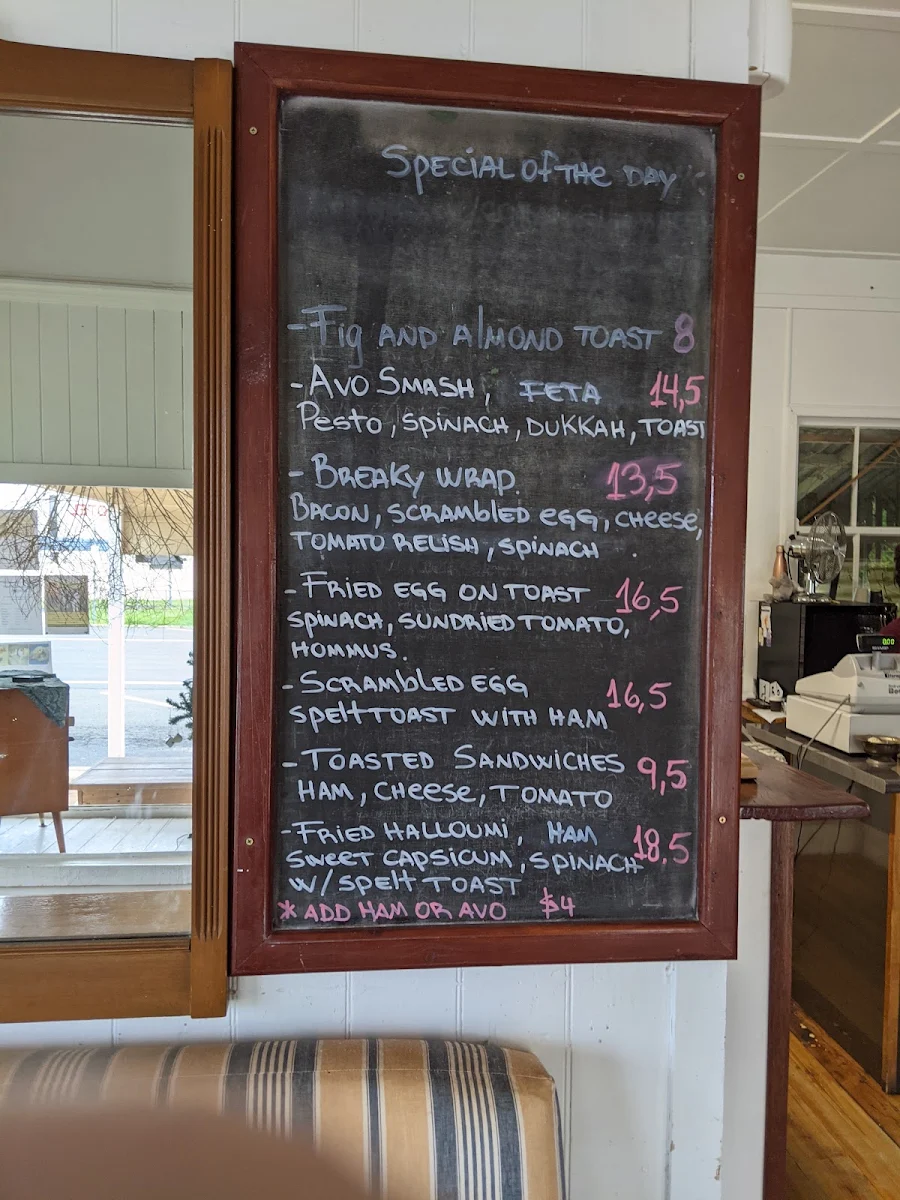 Special of the DAY
- Fig AND AlMOND TOAST 8
- AVO SMASH, FETA 14,5
Pesto, SPINACH, DUKKAH, TOAST
- BREAKY WRAP. 13,5
BACON, SCRAMBLED EGG, CHEESE,
TOMATO RELISH, SPINACH
- FRIED EGG ON TOAST 16,5
SPINACH, SUNDRIED TOMATO,
HOMMUS.
- SCRAMBLED EGG 16,5
SPELT TOAST WITH HAM
- TOASTED SANDWICHES 9,5
HAM, CHEESE, TOMATO
- FRIED HALLOUMI, HAM 18.5
SWEET CAPSICUM, SPINACH
W/ SPELT TOAST
* ADD HAM OR AVO $4